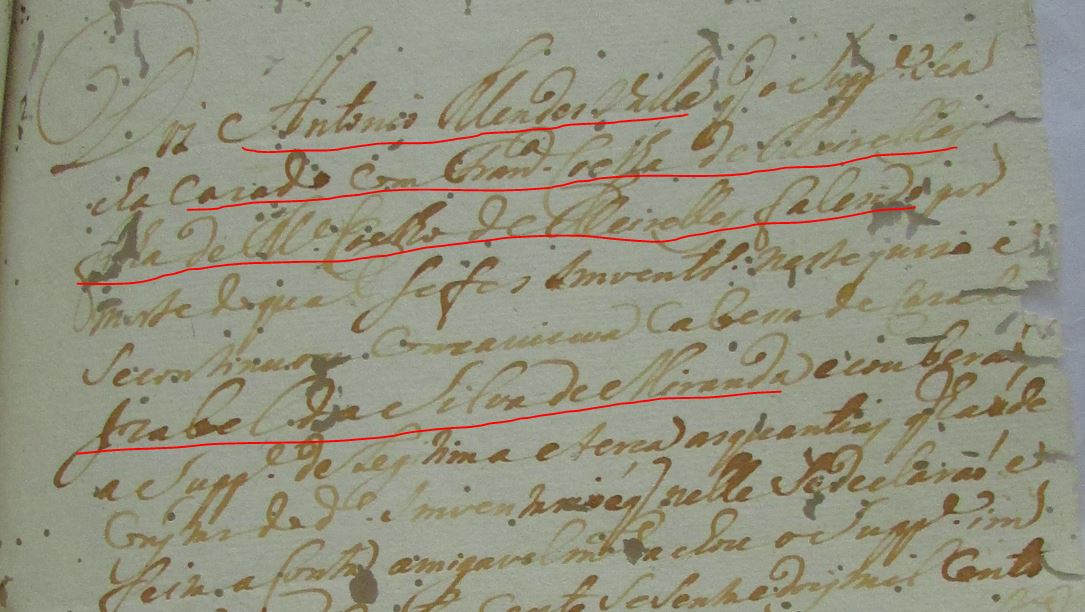 Diz Antonio Mendes Valle q̃ o Supp.e
ella cazado com Fran.ca Coelha de Meirelles
filha de M.el Coelho de Meirelles falescido por
morte do qual se fes Imventr.o neste juizo e
se continuou com a viuva Cabessa de Cazal
Izabel da Silva de Miranda e couberaõ
a Supp.e de Legitima e terça as quantias q̃ haõ de
Constar do d.o Imventario e nelle se declaraõ e
feim a conta amigavelm.te achou o Supp.e
sesenta dois mil Cento